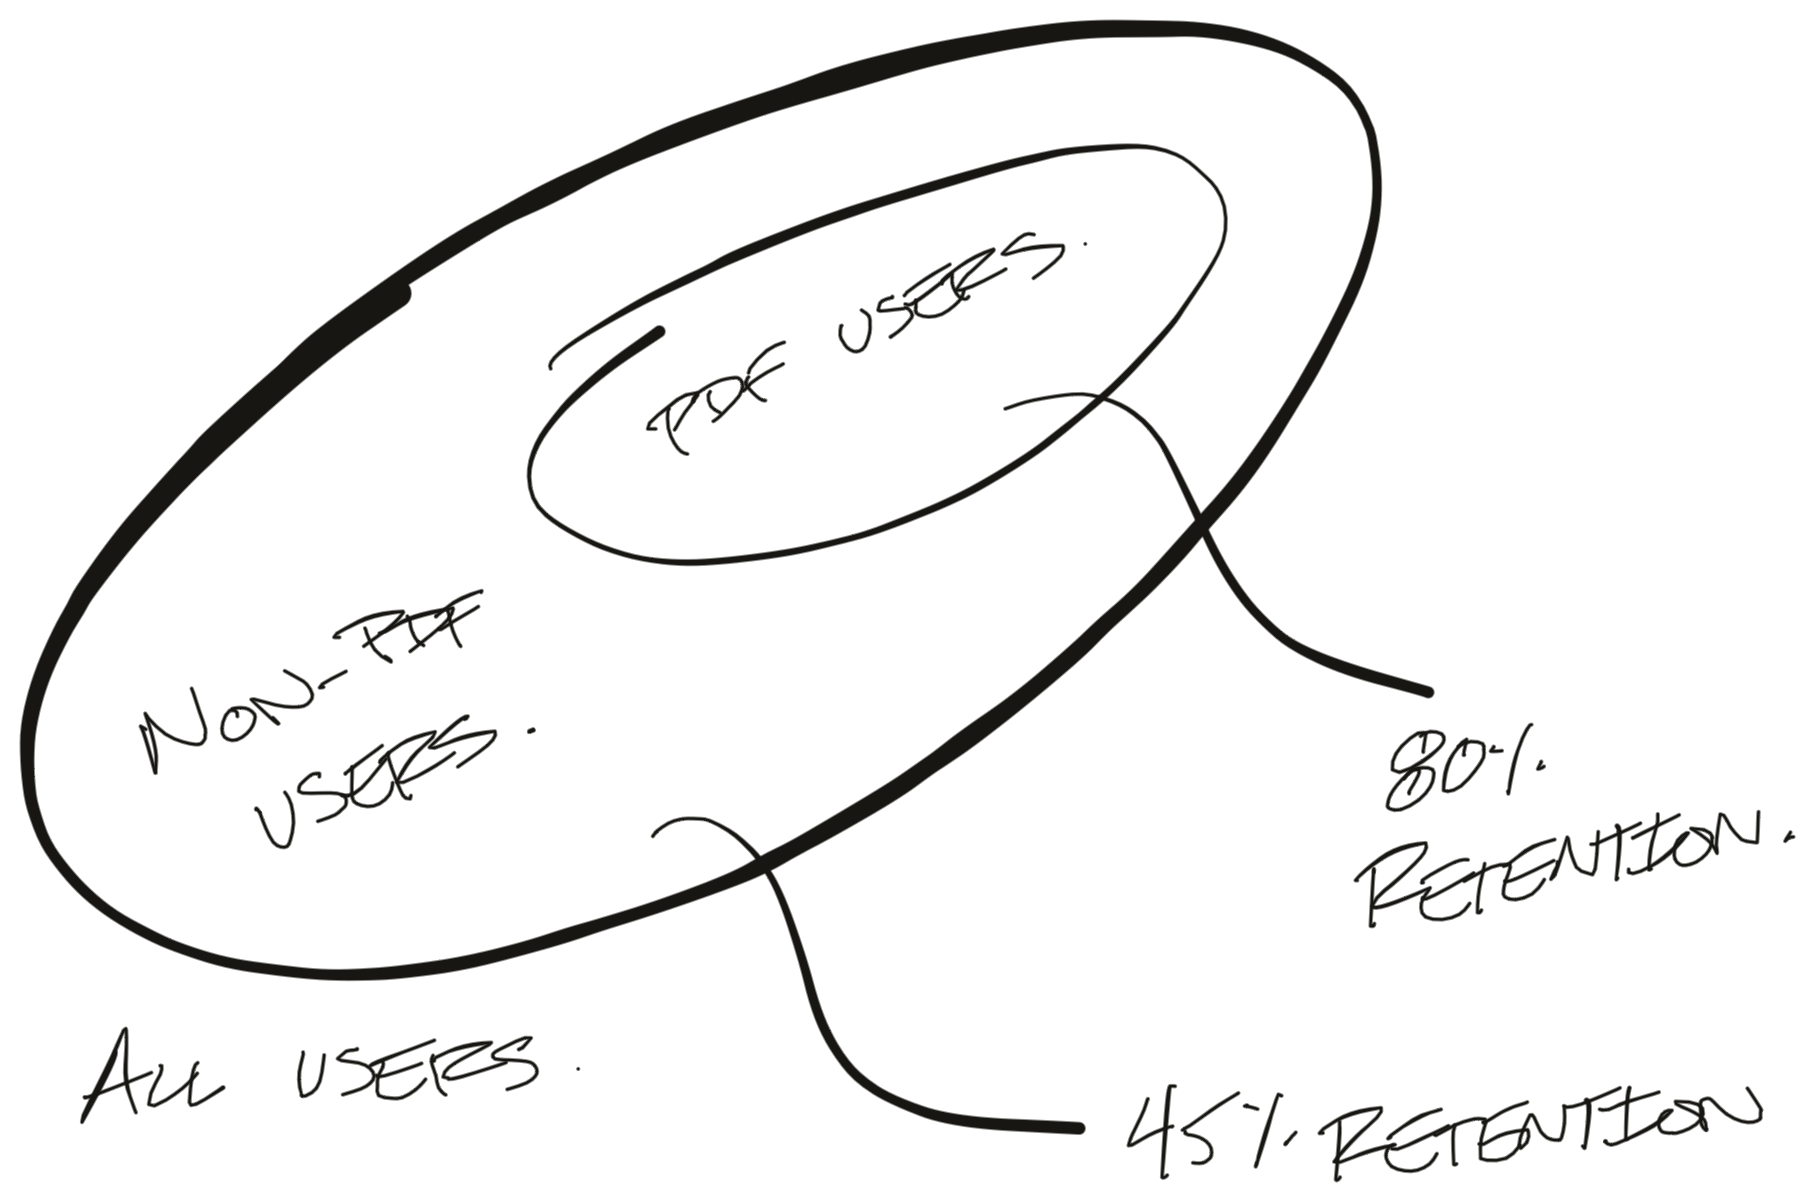 PDF USERS.
NON-PDF
USERS.
80%
RETENTION.
ALL USERS.
45% RETENTION